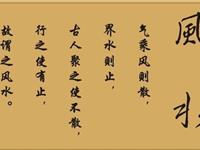 風水
气乘风则散，
界水则止，
古人聚之使不散，
行之使有止，
故谓之风水。